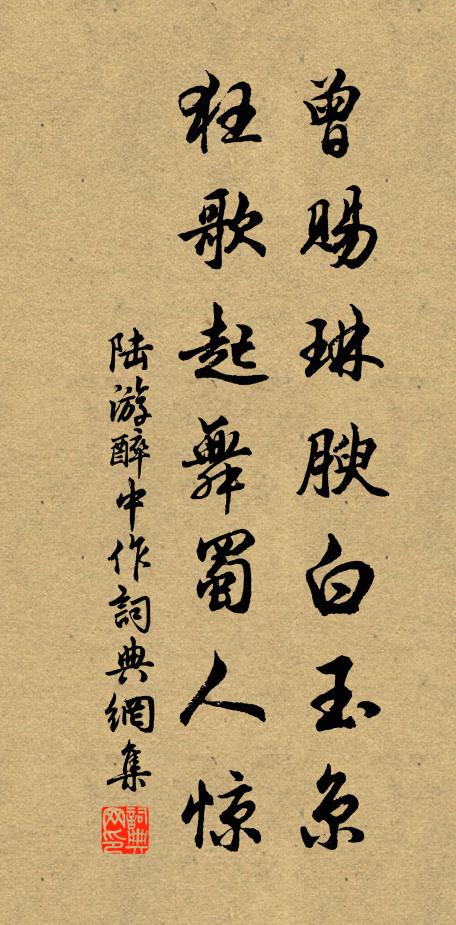 曾赐琳腴白玉京
狂歌起舞蜀人惊
陆游醉中作词典網集
詞典網印